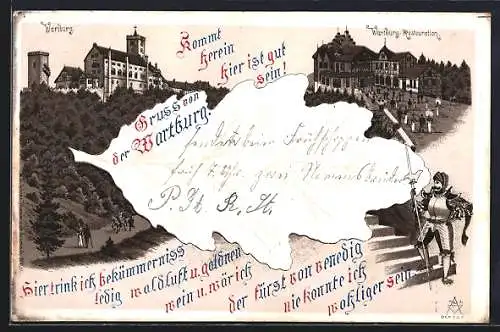 Wartburg.
Wartburg-Restauration.
Kommt
herein
hier ist gut
sein!
Gruss von
der Wartburg.
früh 5 Uhr. zwei
P. St. R. St.
Hier trink ich bekümmerniss
ledig waldluft u. goldnen
wein u. wär ich
der fürst von venedig
nie konnte ich
wohliger sein.